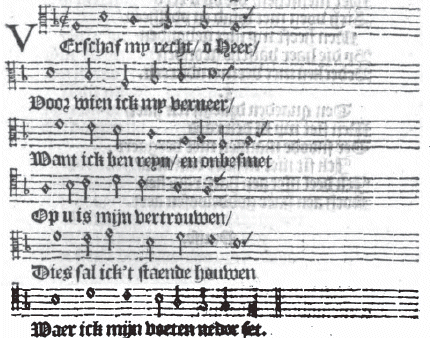 VErschaf my recht/ o Heer/
Voor wien ick my verneer/
Want ick ben reyn/ en onbesmet
Op u is mijn vertrouwen/
Dies sal ick't staende houwen
Waer ick mijn voeten neder set.